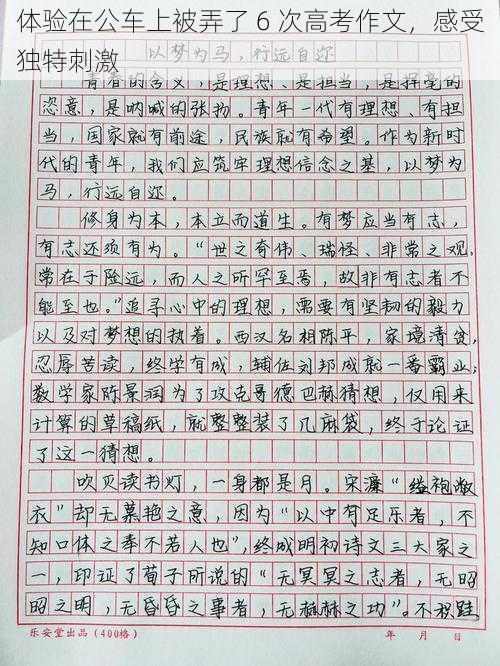 体验在公车上被弄了 6 次高考作文，感受
独特刺激
以梦为马，行远自迩
青春的含义，是理想、是担当，是挥毫的
恣意，是呐喊的张扬。青年一代有理想、有担
当，国家就有前途，民族就有希望。作为新时
代的青年，我们应筑牢理想信念之基，以梦为
马，行远自迩。
修身为本，本立而道生。有梦应当有志，
有志还须有为。“世之奇伟、瑰怪、非常之观，
常在于险远，而人之所罕至焉，故非有志者不
能至也。”追寻心中的理想，需要有坚韧的毅力
以及对梦想的执着。西汉名相陈平，家境清贫，
忍辱苦读，终学有成，辅佐刘邦成就一番霸业；
数学家陈景润为了攻克哥德巴赫猜想，仅用来
计算的草稿纸，就整整装了几麻袋，终于论证
了这一猜想。
吹灭读书灯，一身都是月。宋濂“缊袍敝
衣”却无慕艳之意，因为“以中有足乐者，不
知口体之奉不若人也”，终成明初诗文三大家之
一，印证了荀子所说的“无冥冥之志者，无昭
昭之明，无昏昏之事者，无赫赫之功”。不积跬
乐安堂出品（400格） 年 月 日